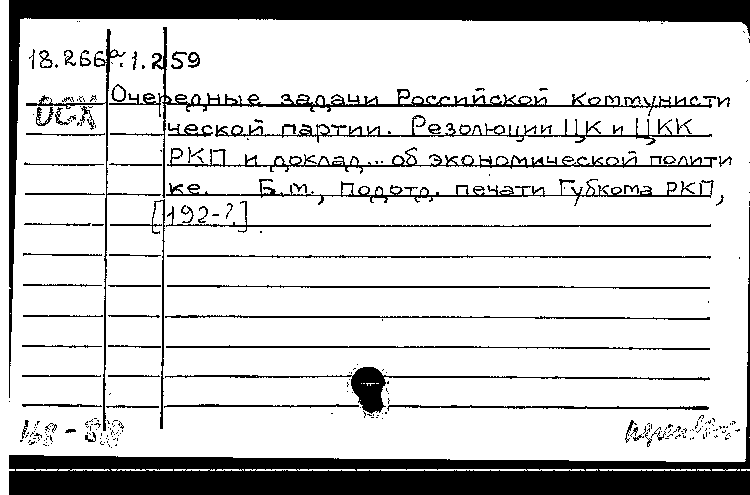 18.266 1.259
ОСХ
Очередные задачи Российской Коммунисти
ческой партии. Резолюции ЦК и ЦКК
РКП и доклад... об экономической полити
ке. Б.м., Подотд. печати Губкома РКП,
[192-?].
168 -